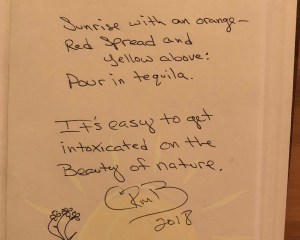 Sunrise with an orange-
Red Spread and
Yellow above:
Pour in tequila.
It's easy to get
intoxicated on the
Beauty of nature.
2018